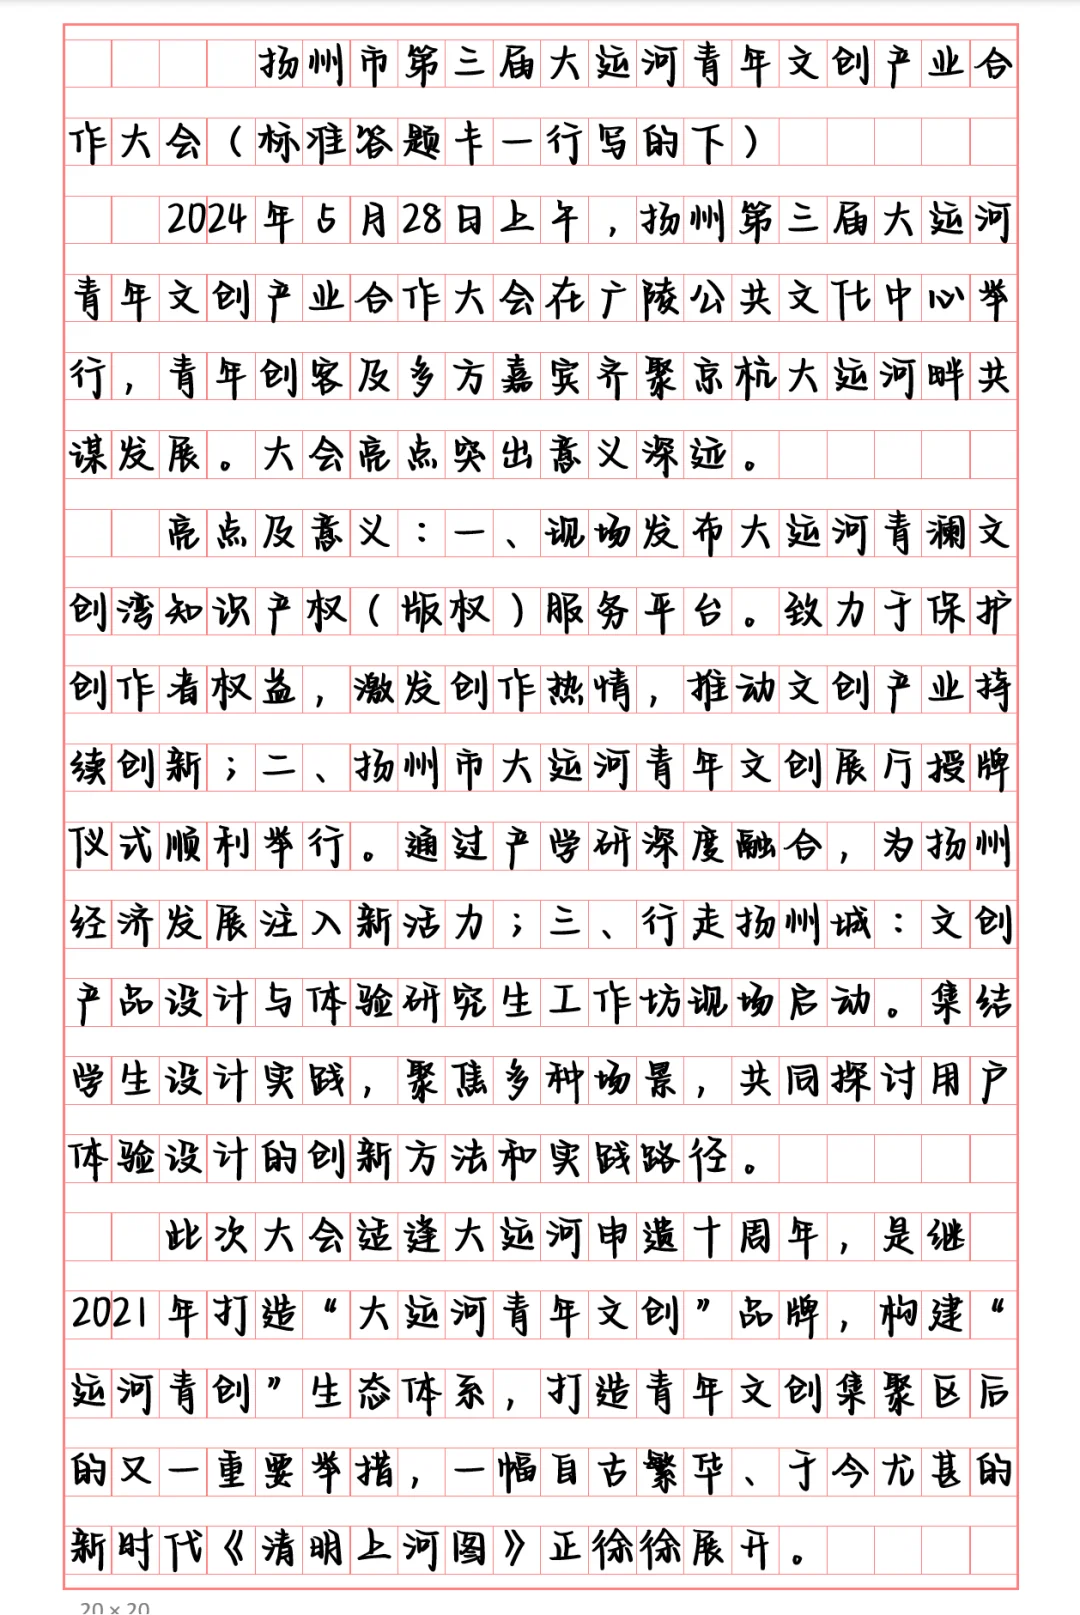 扬州市第三届大运河青年文创产业合
作大会（标准答题卡一行写的下）
2024年5月28日上午，扬州第三届大运河
青年文创产业合作大会在广陵公共文化中心举
行，青年创客及多方嘉宾齐聚京杭大运河畔共
谋发展。大会亮点突出意义深远。
亮点及意义：一、现场发布大运河青澜文
创湾知识产权（版权）服务平台。致力于保护
创作者权益，激发创作热情，推动文创产业持
续创新；二、扬州市大运河青年文创展厅授牌
仪式顺利举行。通过产学研深度融合，为扬州
经济发展注入新活力；三、行走扬州城：文创
产品设计与体验研究生工作坊现场启动。集结
学生设计实践，聚焦多种场景，共同探讨用户
体验设计的创新方法和实践路径。
此次大会适逢大运河申遗十周年，是继
2021年打造“大运河青年文创”品牌，构建“
运河青创”生态体系，打造青年文创集聚区后
的又一重要举措，一幅自古繁华、于今尤甚的
新时代《清明上河图》正徐徐展开。
20×20